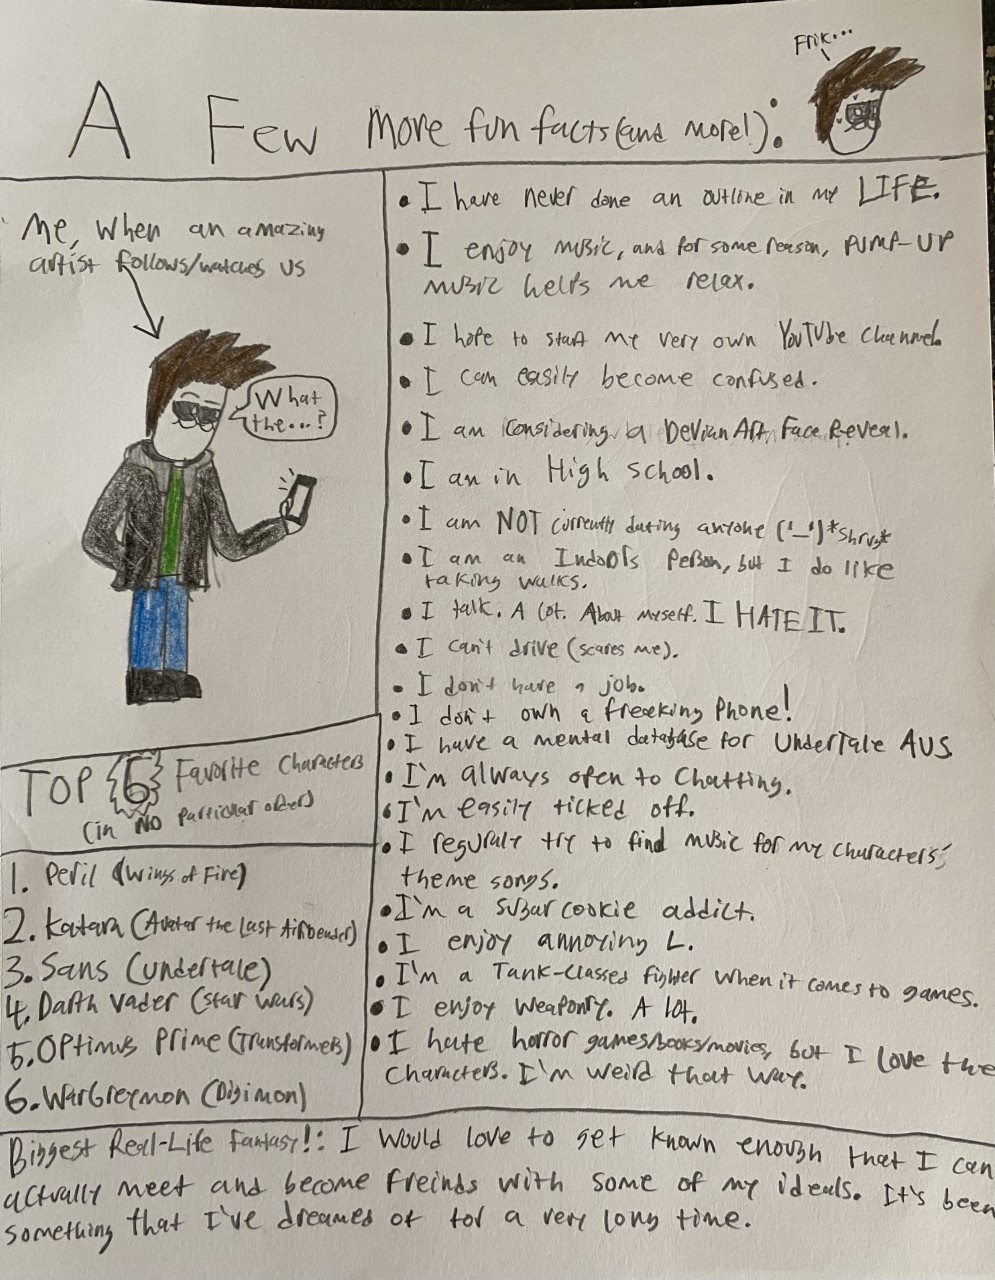 Frik...
A Few more fun facts (and more!):
Me, when an amazing
artist follows/watches us
What
the...?
• I have never done an outline in my LIFE.
• I enjoy music, and for some reason, PUMP-UP
music helps me relax.
• I hope to start my very own YouTube channel.
• I can easily become confused.
• I am considering a DevianArt Face Reveal.
• I am in High school.
• I am NOT currently dating anyone ('_') *shrug*
• I am an Indoors Person, but I do like
taking walks.
• I talk. A lot. About myself. I HATE IT.
• I can't drive (scares me).
• I don't have a job.
• I don't own a freaking Phone!
• I have a mental database for Undertale AUS
• I'm always open to Chatting.
• I'm easily ticked off.
• I reguraly try to find music for my characters'
theme songs.
• I'm a sugar cookie addict.
• I enjoy annoying L.
• I'm a Tank-Classed fighter when it comes to games.
• I enjoy weaponry. A lot.
• I hate horror games/books/movies, but I love the
characters. I'm weird that way.
TOP 6 Favorite Characters
(in NO particular order)
1. Peril (Wings of Fire)
2. Katara (Avatar the Last Airbender)
3. Sans (Undertale)
4. Darth Vader (Star Wars)
5. Optimus Prime (Transformers)
6. WarGreymon (Digimon)
Biggest Real-Life Fantasy!: I would love to get known enough that I can
actually meet and become freinds with some of my ideals. It's been
something that I've dreamed of for a very long time.